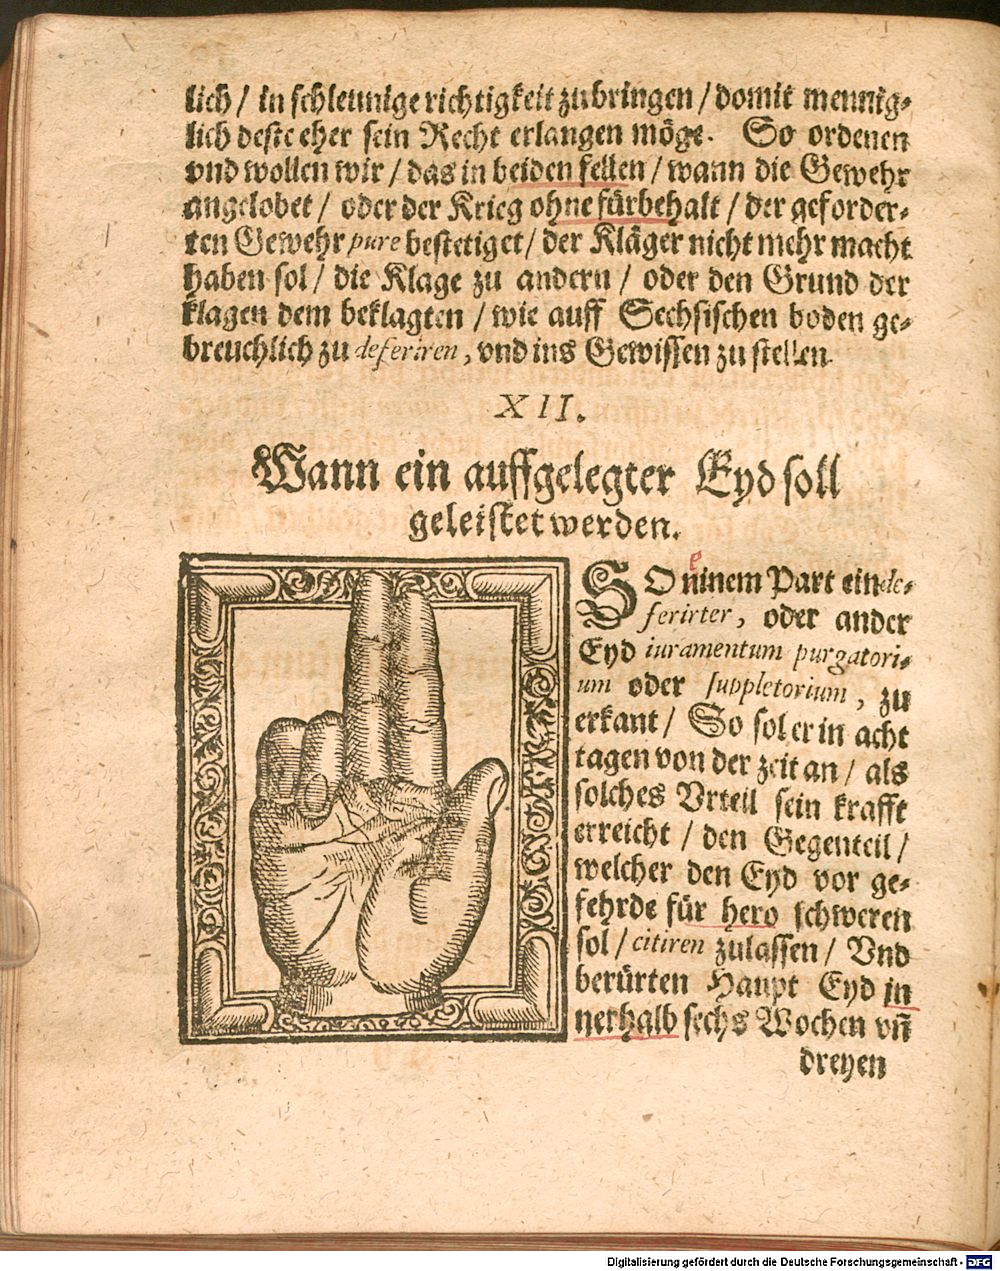 lich / in schleunige richtigkeit zubringen / domit mennig-
lich deste eher sein Recht erlangen möge. So ordenen
vnd wollen wir / das in beiden fellen / wann die Gewehr
angelobet / oder der Krieg ohne fürbehalt / der geforder-
ten Gewehr pure bestetiget / der Kläger nicht mehr macht
haben sol / die Klage zu andern / oder den Grund der
klagen dem beklagten / wie auff Sechsischen boden ge-
breuchlich zu deferiren, vnd ins Gewissen zu stellen.
XII.
Wann ein auffgelegter Eyd soll
geleistet werden.
e
SO ninem Part ein de-
ferirter, oder ander
Eyd iuramentum purgatori-
um oder suppletorium, zu
erkant / So sol er in acht
tagen von der zeit an / als
solches Vrteil sein krafft
erreicht / den Gegenteil /
welcher den Eyd vor ge-
fehrde für hero schweren
sol / citiren zulassen / Vnd
berürten Haupt Eyd in
nerhalb sechs Wochen vñ
dreyen
Digitalisierung gefördert durch die Deutsche Forschungsgemeinschaft - DFG